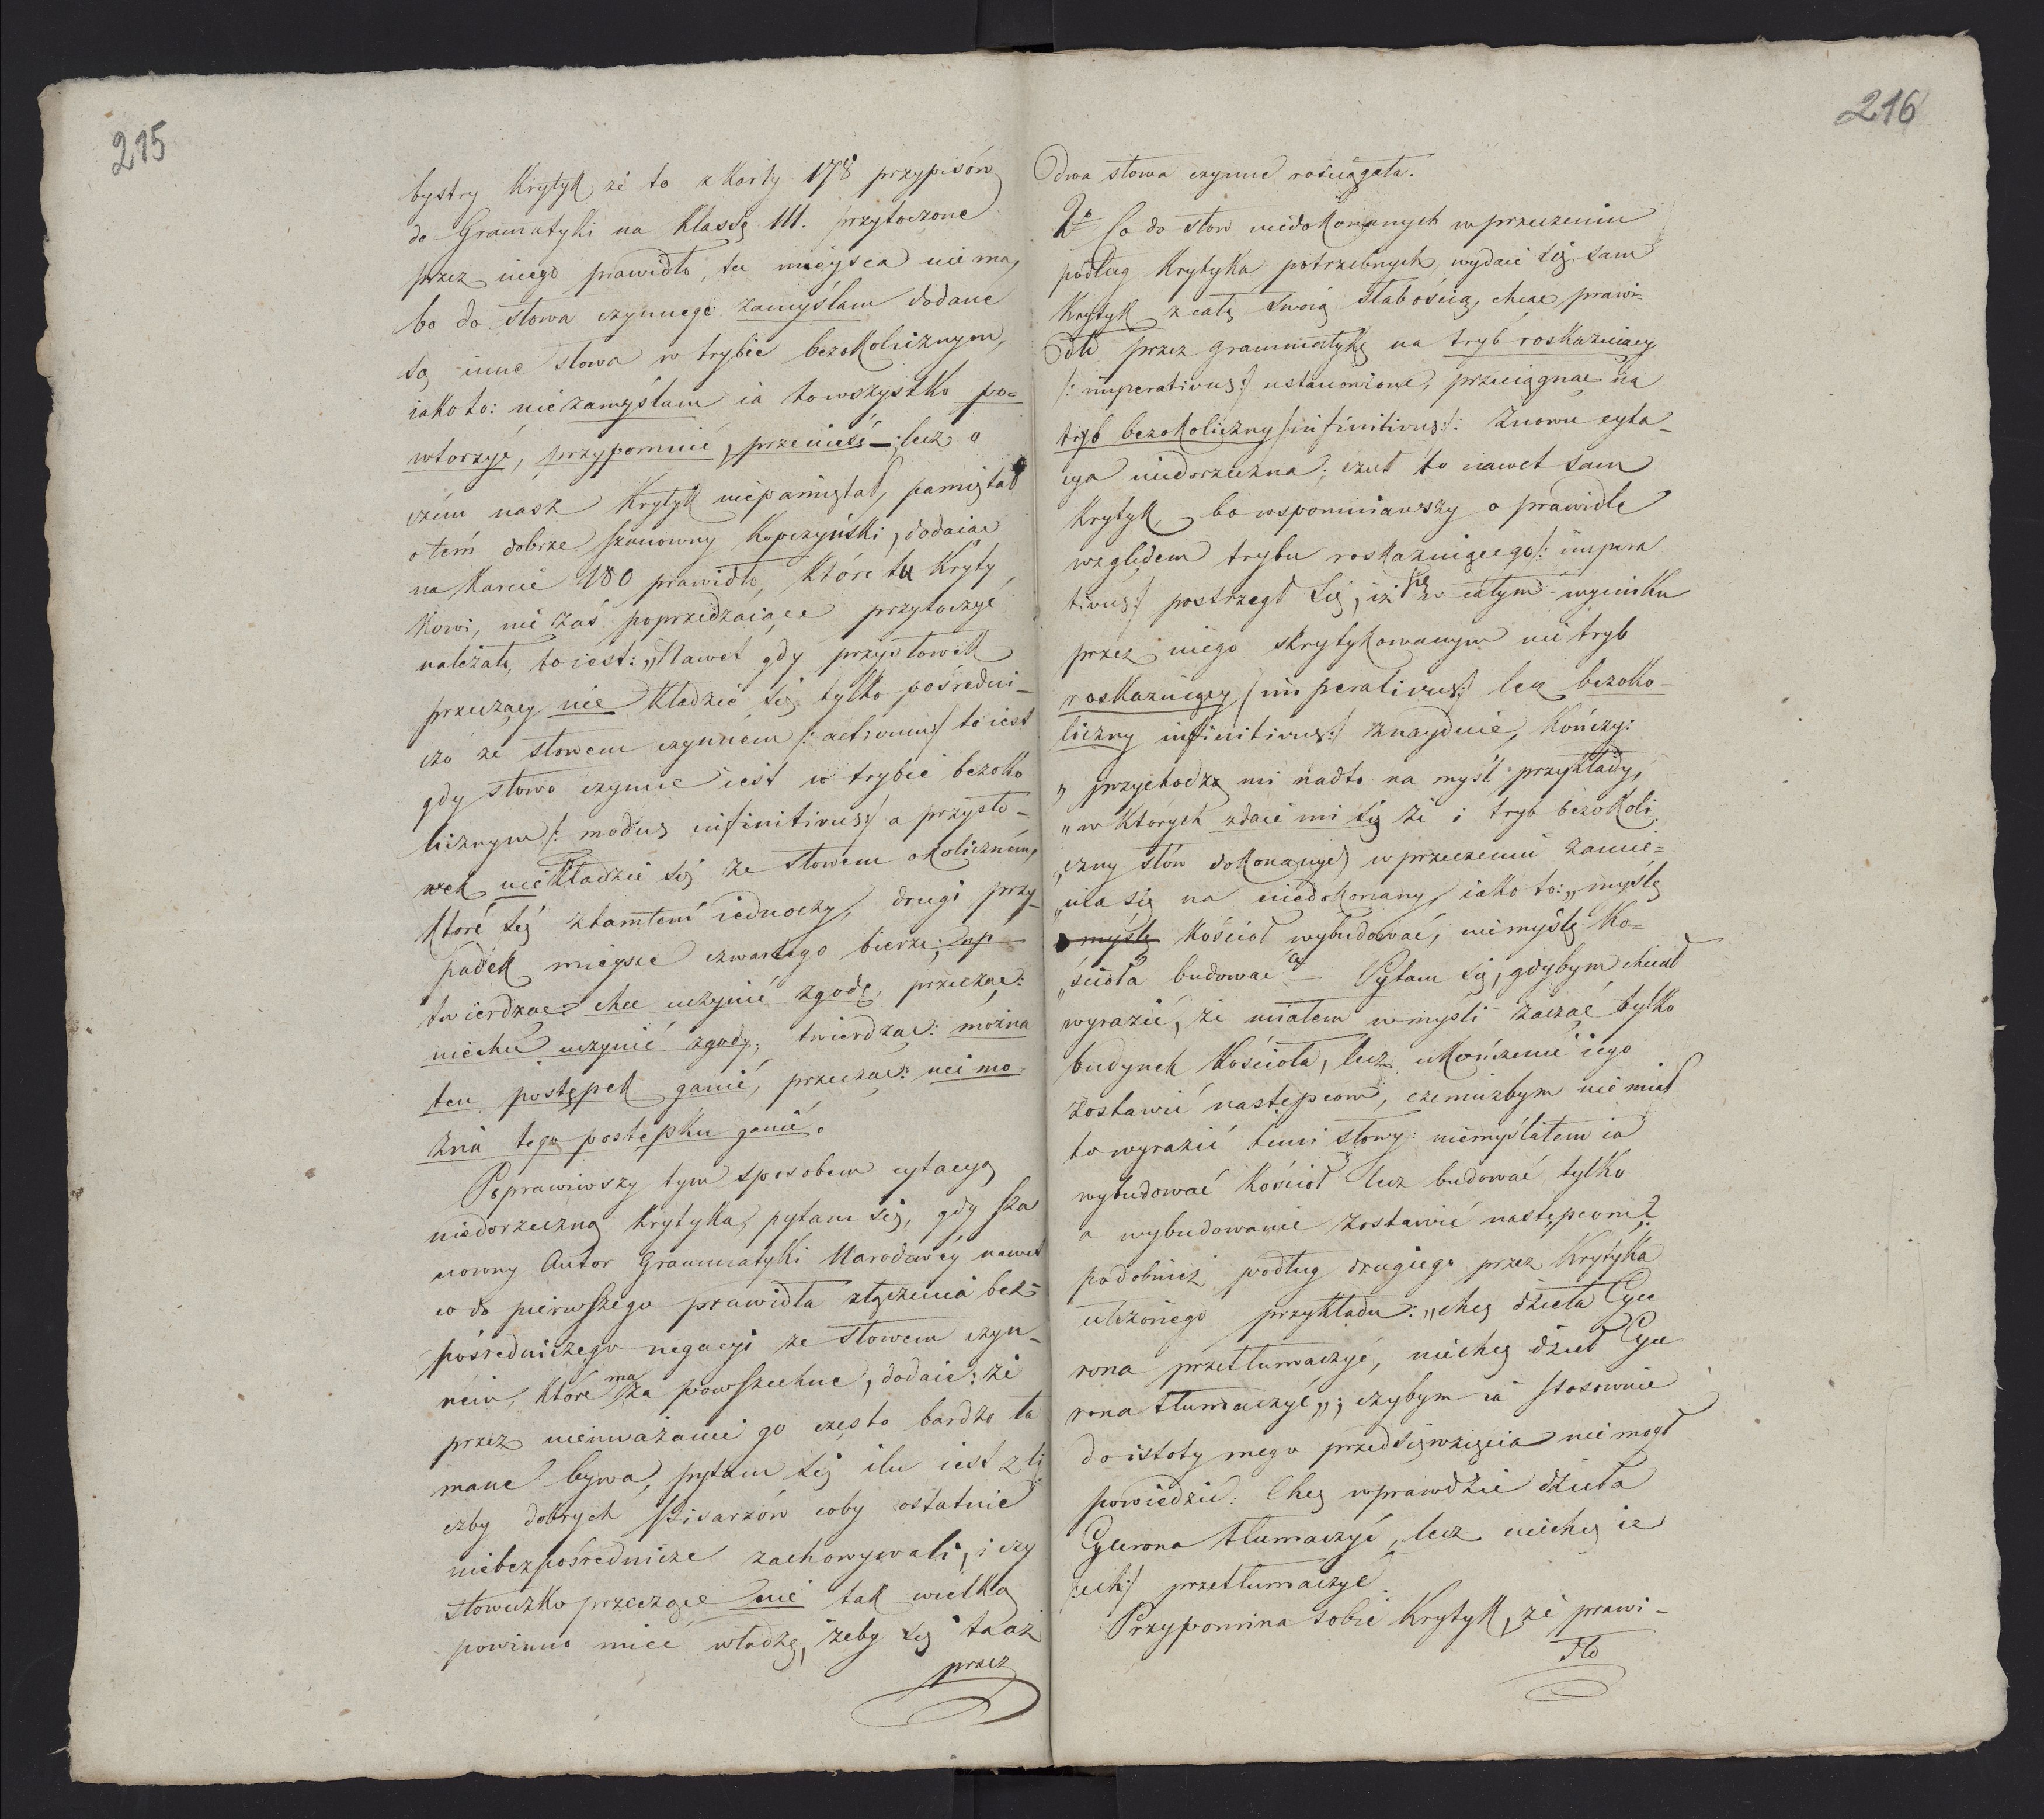 215
bystry Krytyk że to z karty 178 przypisów
do Gramatyki na Klassę III. przytoczone
przez niego prawidło, tu mieysca nie ma,
bo do słowa czynnego zamyślam dodane
są inne słowa w trybie bezokolicznym,
iako to: nie zamyślam ia to wszystko po=
wtorzyć, przypomnić, przenieść —; lecz o
czém nasz Krytyk nie pamiętał, pamiętał
o tém dobrze szanowny Kopczyński, dodaiąc
na karcie 180 prawidło, które tu Kryty
kowi, nie zaś poprzedzaiące przytoczyć
należało, to iest: „Nawet gdy przysłowek
przeczący nie kładzie się tylko pośredni-
czo ze słowem czynném /: activum :/ to iest
gdy słowo czynne iest w trybie bezoko
licznym /: modus infinitivus :/ a przysło-
wek nie kładzie się ze słowem okoliczném,
które się z tamtém iednoczy, drugi przy-
padek mieysce czwartego bierze; np
twierdząc: chcę uczynić zgodę, przecząc:
niechcę uczynić zgody; twierdząc: można
ten postępek ganić, przecząc: nie mo-
żna tego postępku ganić.
Poprawiwszy tym sposobem cytacyą
niedorzeczną Krytyka, pytam się, gdy sza
nowny Autor Grammatyki Narodowéy nawet
co do pierwszego prawidła złączenia bez=
pośredniczego negacyi ze słowem czyn-
ném, które ma za powszechne, dodaie: że
przez nieuważanie go często bardzo ła
mane bywa, pytam się ilu iest z li
czby dobrych pisarzów coby ostatnie
niebezpośrednicze zachowywali, i czy
słoweczko przeczące nie tak wielką
powinno mieć władzę, żeby się ta aż
przez
216
dwa słowa czynne rościągała.
2o Co do słow niedokonanych w przeczeniu
podług Krytyka potrzebnych, wydaie się sam
Krytyk z całą swoią słabością, chcąc prawi=
dło przez grammatykę na tryb roskazuiący
/: imperativus :/ ustanowione, przeciągnąć na
tryb bezokoliczny /: infinitivus :/. Znowu cyta-
cya niedorzeczna; czuł to nawet sam
Krytyk, bo wspomniawszy o prawidle
względem trybu roskazuiącego /: impera
tivus :/ postrzegł się, iż się w całym wyimku
przez niego skrytykowanym nie tryb
roskazuiący /: imperativus :/ lecz bezoko-
liczny infinitivus :/ znayduie, kończy:
„ przychodzą mi nadto na myśl przykłady,
„ w których zdaie mi się że i tryb bezokoli
„ czny słów dokonanych w przeczeniu zamie=
„ nia się na niedokonany, iako to: „ myślę
kościoł wybudować, nie myślę ko=
„ścioła budować “ — Pytam się, gdybym chciał
wyrazić, że miałem w myśli zacząć tylko
budynek kościoła, lecz ukończenie iego
zostawić następcom, czemużbym nie miał
to wyrazić temi słowy: nie myślałem ia
wybudować kościoł lecz budować tylko
a wybudowanie zostawić następcom?
podobnież podług drugiego przez Krytyka
ułożonego przykładu: „ chcę dzieła Cyce
rona przetłumaczyć, niechcę dzieł Cyce
rona tłumaczyć „; czybym ia stosownie
do istoty mego przedsięwzięcia nie mogł
powiedzieć: Chcę wprawdzie dzieła
Cycerona tłumaczyć, lecz niechcę ie
/: ich :/ przetłumaczyć.
Przypomina sobie Krytyk, że prawi-
dło